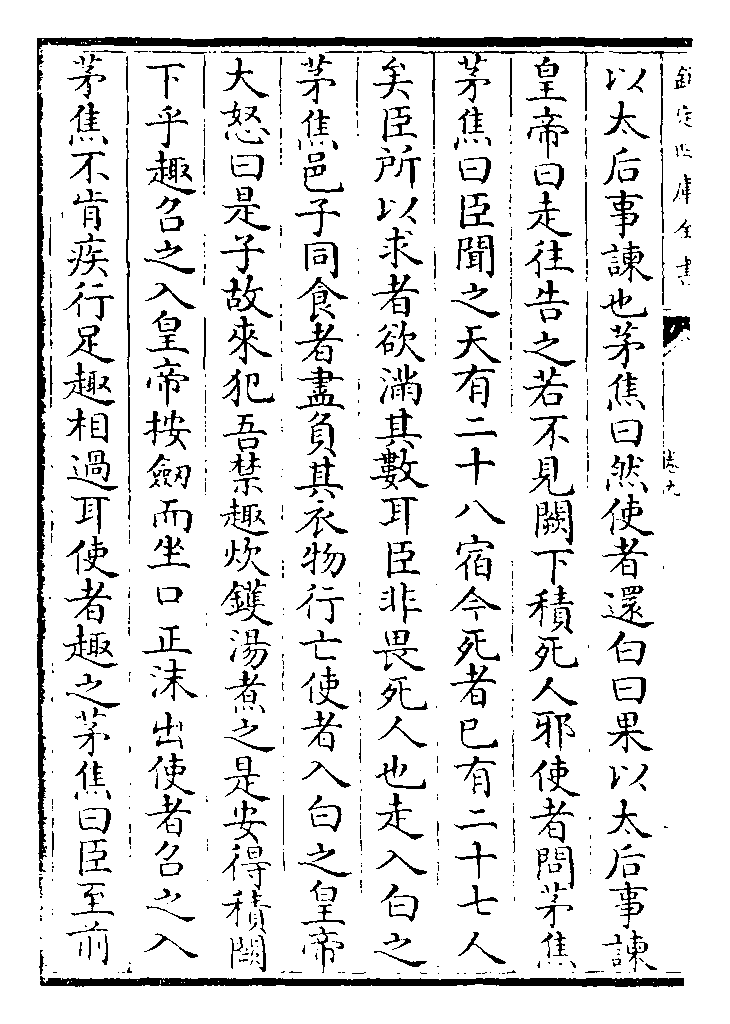 欽定四庫全書
卷九
以太后事諫也茅焦曰然使者還白曰果以太后事諫
皇帝曰走往告之若不見闕下積死人邪使者問茅焦
茅焦曰臣聞之天有二十八宿今死者已有二十七人
矣臣所以求者欲滿其數耳臣非畏死人也走入白之
茅焦邑子同食者盡負其衣物行亡使者入白之皇帝
大怒曰是子故來犯吾禁趣炊鑊湯煮之是安得積闕
下乎趣召之入皇帝按劒而坐口正沫出使者召之入
茅焦不肯疾行足趣相過耳使者趣之茅焦曰臣至前